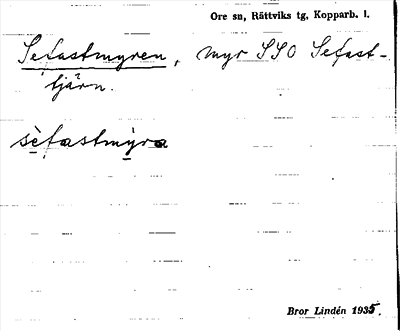 Ore sn, Rättviks tg, Kopparb. l.
Sefastmyren, myr SSO Sefast-
tjärn.
sèfastmỳra
Bror Lindén 1935.